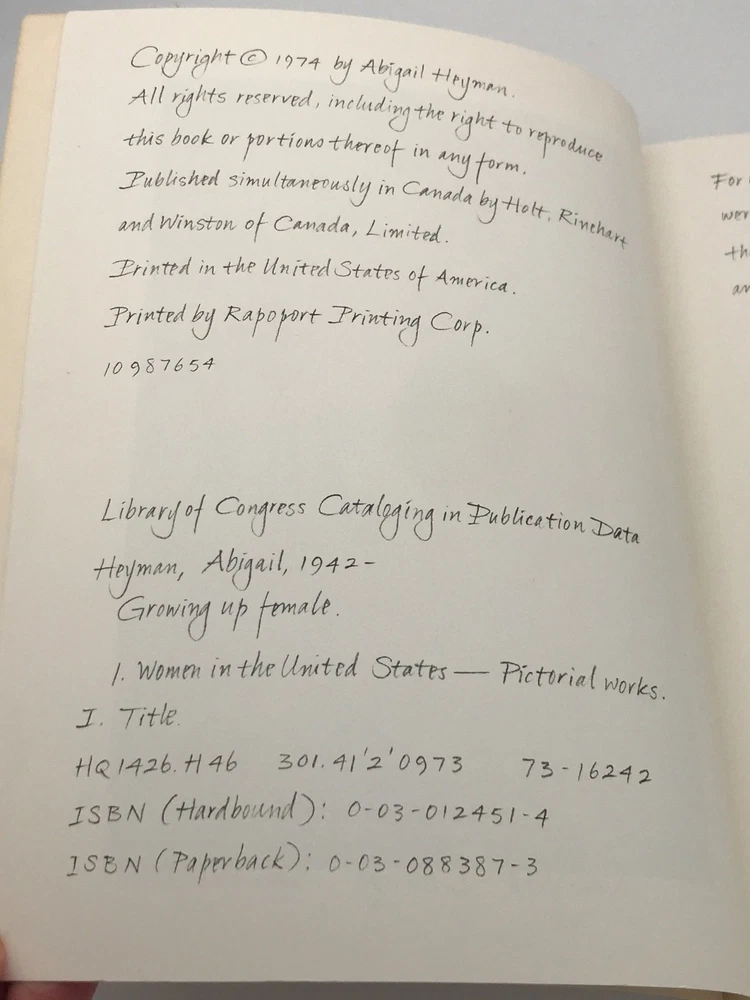 Copyright © 1974 by Abigail Heyman.
All rights reserved, including the right to reproduce
this book or portions thereof in any form.
Published simultaneously in Canada by Holt, Rinehart
and Winston of Canada, Limited.
Printed in the United States of America.
Printed by Rapoport Printing Corp.
10 9 8 7 6 5 4
Library of Congress Cataloging in Publication Data
Heyman, Abigail, 1942-
Growing up female.
1. Women in the United States — Pictorial works.
I. Title.
HQ1426.H46 301.41'2'0973 73-16242
ISBN (Hardbound): 0-03-012451-4
ISBN (Paperback): 0-03-088387-3
For